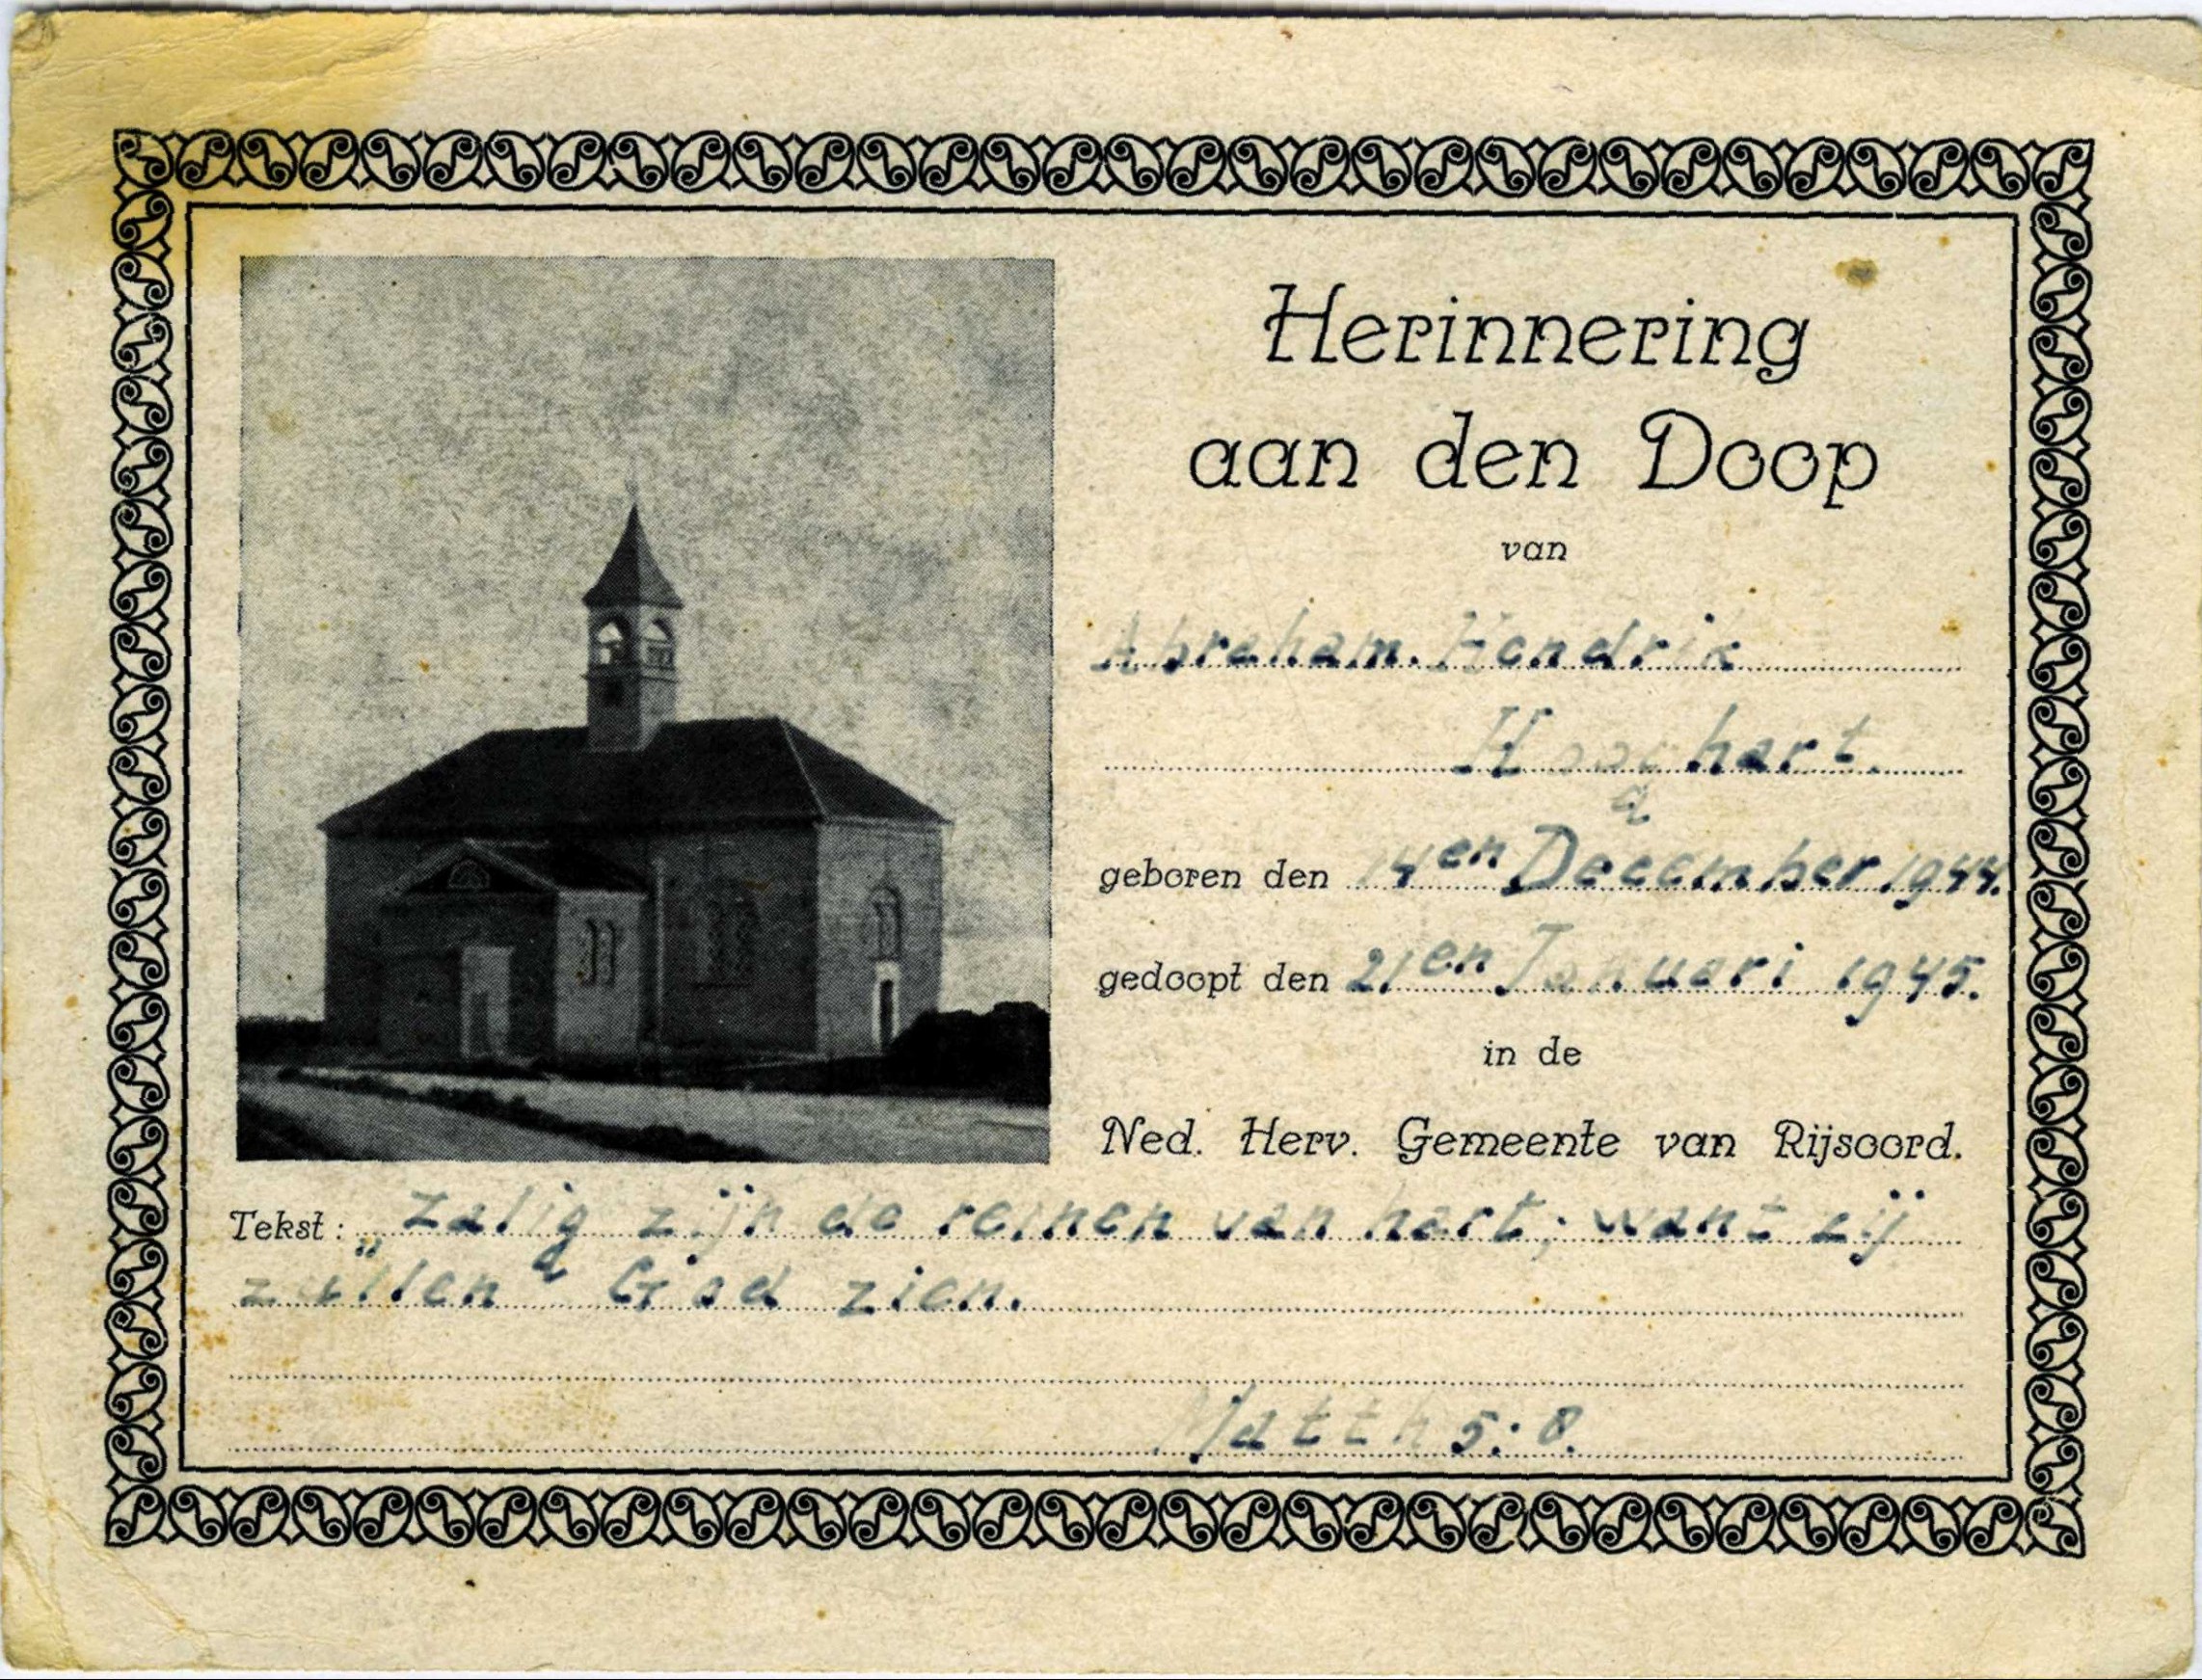 Herinnering
aan den Doop
van
Abraham Hendrik
Hooghart.
geboren den 14en December 1944.
gedoopt den 21en Januari 1945.
in de
Ned. Herv. Gemeente van Rijsoord.
Tekst: „Zalig zijn de reinen van hart; want zij
zullen God zien.
Matth 5:8.